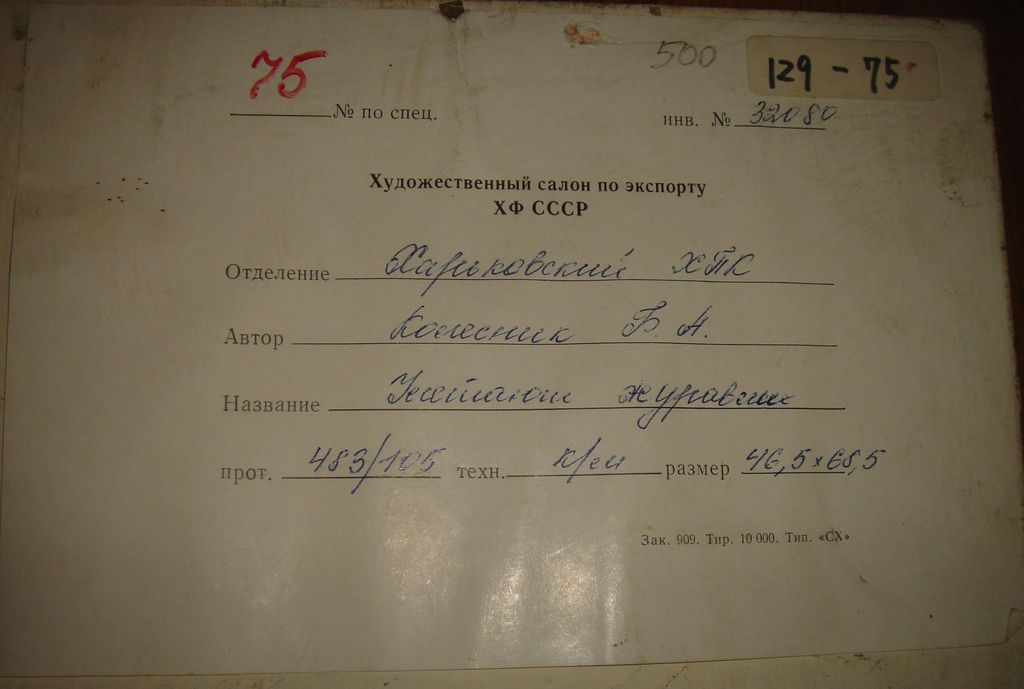 75
500
129 - 75
№ по спец.
инв. № 32080
Художественный салон по экспорту
ХФ СССР
Отделение Харьковский ХПК
Автор Колесник Б. А.
Название Улетают журавли
прот. 483/105 техн. к/м размер 46,5 x 68,5
Зак. 909. Тир. 10 000. Тип. «СХ»